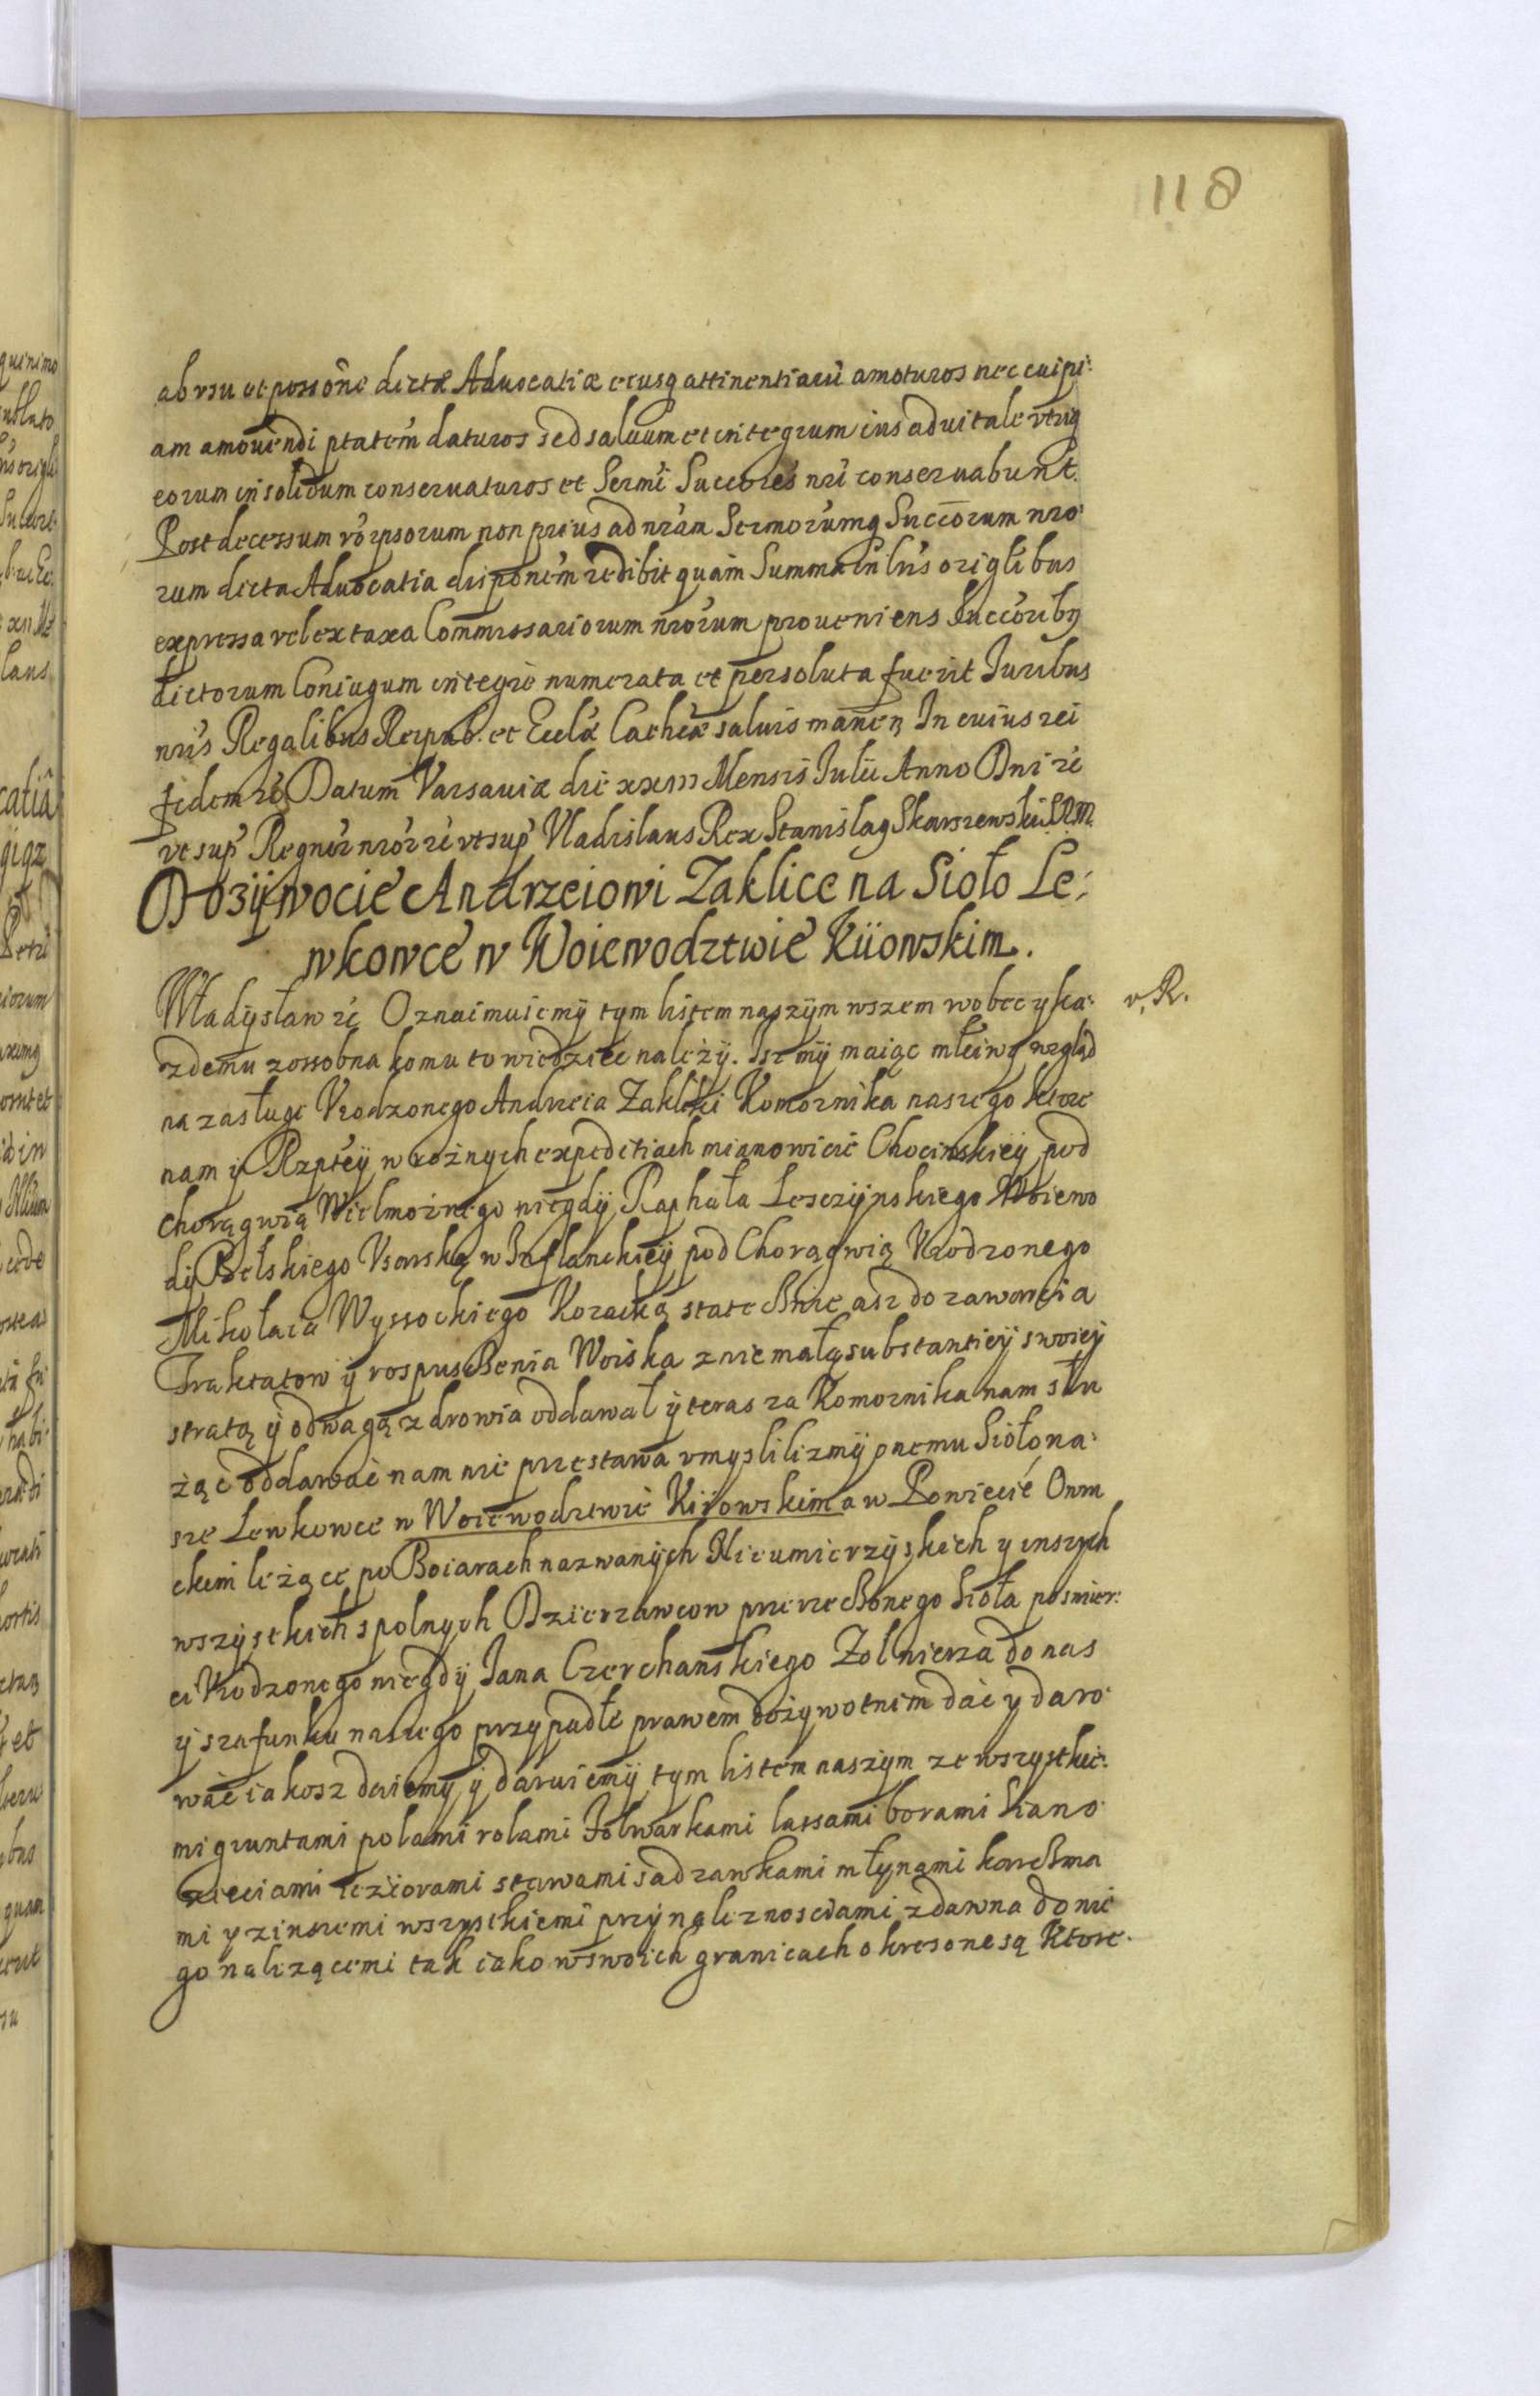 118
ab usu et possone dictæ Advocatiæ eiusq attinentiarū amoturos nec cuipi:
am amovendi ptatem daturos sed salvum et integrum ius advitale utriq
eorum in solidum conservaturos et Sermi Succores nri conservabunt.
Post decessum vo ipsorum non prius ad nram Sermorumq Succorum nro
rum dicta Advocatia disponem redibit quam Summa in lris origlibus
expressa vel ex taxa Commissariorum nrorum proveniens Succoribq
dictorum Coniugum integre numerata et persoluta fuerit Juribus
nris Regalibus Reipub. et Eccla Cathcæ salvis manen In cuius rei
fidem rc Datum Varsaviæ die xxm Mensis Julii Anno Dni rc
ut sup Regnor nror rc ut sup Vladislaus Rex Stanislaq Skarszewski S.R.M.
Dozÿwocie Andrzeiowi Zaklice na Sioło Le:
wkowce w Woiewodztwie Kiiowskim.
Władysław rc Oznaimuiemÿ tym listem naszÿm wszem wobec y ka: v. R.
zdemu zossobna komu to wiedziec należÿ. Isz mÿ maiąc młciwy wzgląd
na zasługi Vrodzonego Andrzeia Zakliki Komornika naszego ktore
nam ÿ Rzptey w rożnych expeditiach mianowicie Chocimskiey pod
chorągwią Wielmożnego niegdÿ Raphała Lesczÿnskiego Woiewo
dÿ Bełskiego Vsarską w Inflanckiey pod Chorągwią Vrodzonego
Mikołaia Wyssockiego Kozacką statecznie asz do zawarcia
Traktatow ÿ rospusczenia Woiska z niemałą substantiey swoiey
stratą ÿ odwagą zdrowia oddawał ÿ teras za Komornika nam słu
żąc oddawac nam nie przestawa vmyslilizmÿ onemu Sioło na:
sze Lewkowce w Woiewodztwie Kiiowskim a w Powiecie Owru
ckim leżące po Boiarach nazwanÿch Nieumierzÿckich y inszych
wszÿstkich spolnych Dzierzawcow przerzeczonego Sioła po smier:
ci Vrodzonego niegdÿ Jana Czerchanskiego Zolnierza do nas
ÿ szafunku naszego przypadłe prawem dożywotnim dac y daro
wac iakosz daiemy ÿ daruiemÿ tym listem naszym ze wszystkie:
mi gruntami polami rolami folwarkami lassami borami Siano
zieciami ieziorami stawami sadzawkami młynami karczma
mi y z inszemi wszystkiemi przÿnaleznosciami zdawna do nie
go należącemi tak iako w swoich granicach okresone są Ktore